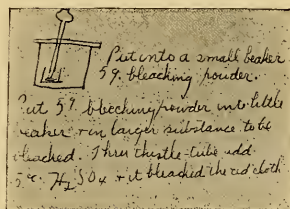 Put into a small beaker
5g. bleaching powder.
Put 5g bleeching powder into little
beaker + in larger substance to be
bleached. Thru thistle-tube add
5cc. H2SO4 + it bleached the red cloth